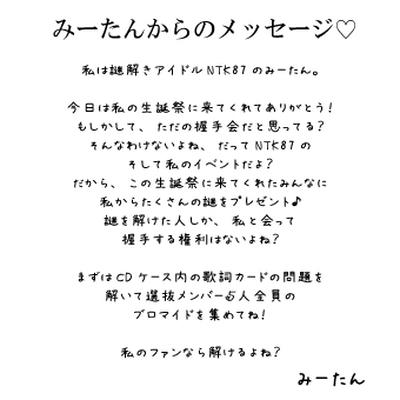 みーたんからのメッセージ♡
私は謎解きアイドルNTK87のみーたん。
今日は私の生誕祭に来てくれてありがとう!
もしかして、ただの握手会だと思ってる?
そんなわけないよね、だってNTK87の
そして私のイベントだよ?
だから、この生誕祭に来てくれたみんなに
私からたくさんの謎をプレゼント♪
謎を解けた人しか、私と会って
握手する権利はないよね?
まずはCDケース内の歌詞カードの問題を
解いて選抜メンバー5人全員の
ブロマイドを集めてね!
私のファンなら解けるよね?
みーたん